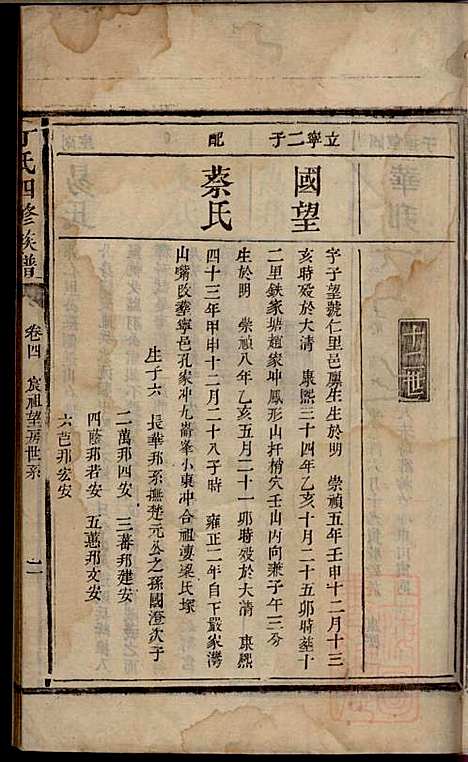 十二世
立寧二子
國望
字子望號仁里邑廩生生於明　崇禎五年壬申十二月十三
亥時殁於大清　康熙三十四年乙亥十月二十五卯時葬十
二里鉄家塘趙家冲鳳形山扦梢穴壬山丙向兼子午三分
配
蔡氏
生於明　崇禎八年乙亥五月二十一卯時殁於大清　康熙
四十三年甲申十二月二十八子時　雍正二年自下嚴家灣
山嘴改葬寧邑孔家冲九崙峯小東冲合祖湊梁氏塚
生子六　長華邦系撫楚元公之孫國澄次子
二萬邦四安　三蕃邦建安
四蔭邦若安　五蕙邦文安
六芑邦宏安
丁氏四修族譜
卷四　宸祖望房世系